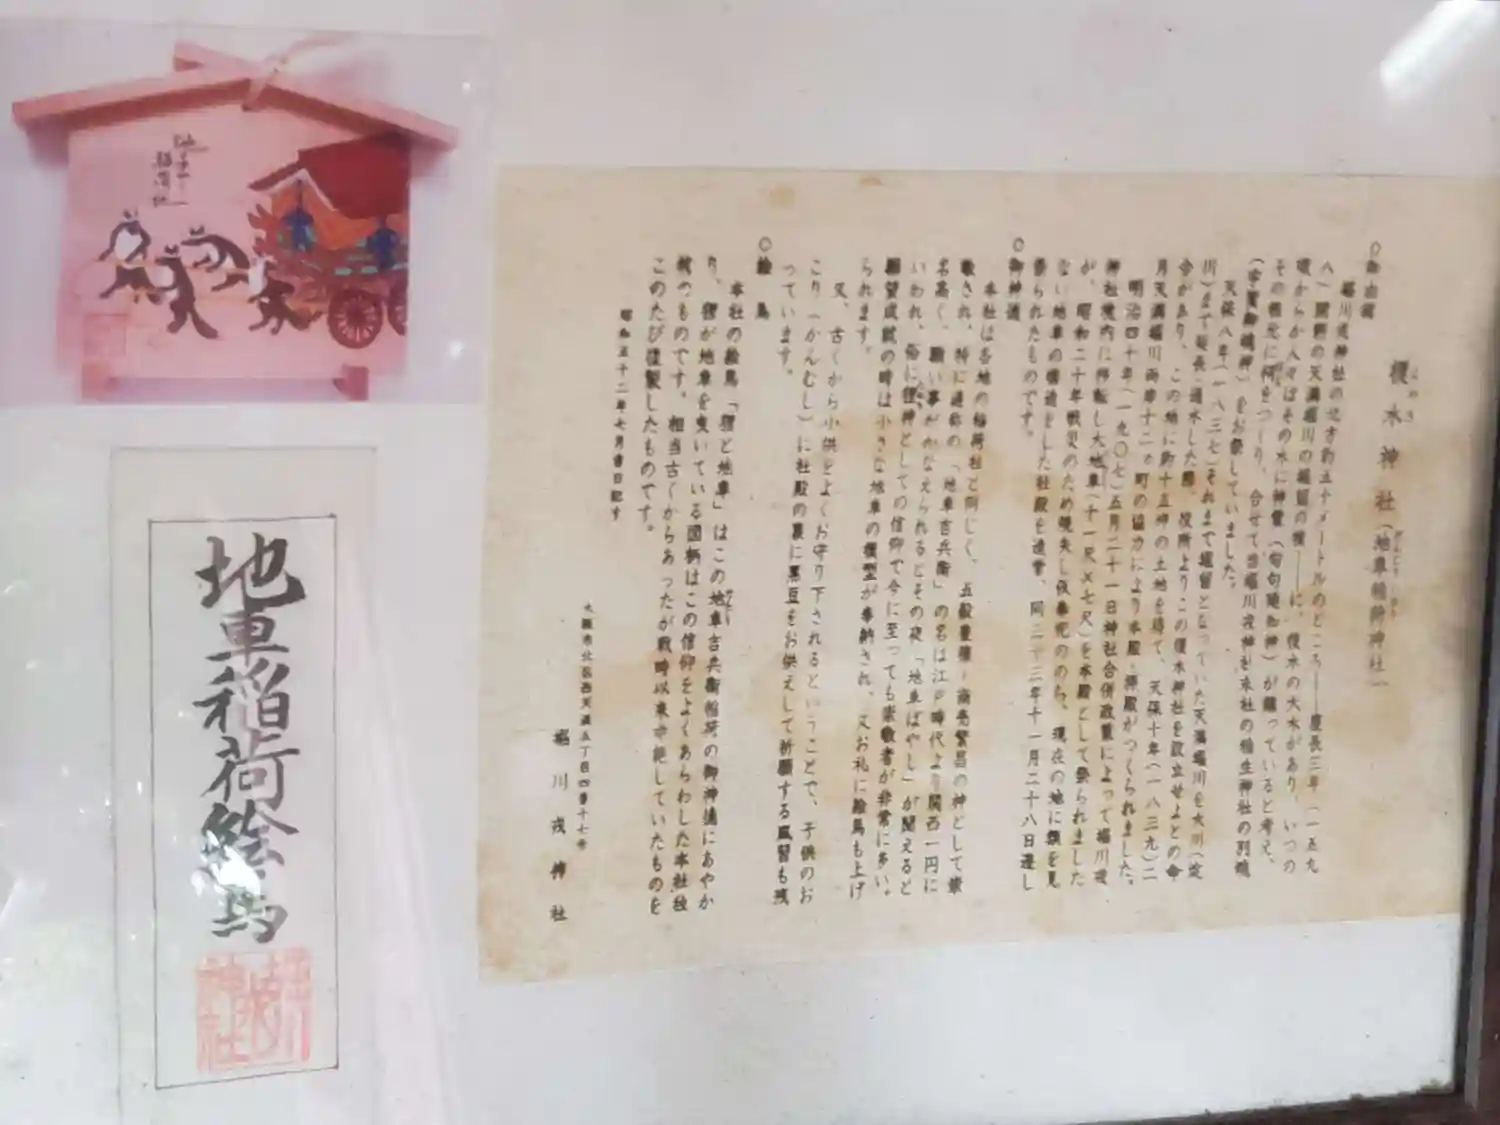 榎木神社(地車稲荷神社)
えのき
○御由緒
堀川戎神社の北方約五十メートルのところ――慶長三年(一五九
八)開削の天満堀川の堀留の横――に、榎木の大木があり、いつの
頃からか人々はその木に神霊(句句廼知神)が宿っていると考え、
その根元に祠をつくり、合せて当堀川戎神社末社の稲生神社の別魂
(宇賀御魂神)をお祭していました。
天保八年(一八三七)それまで堀留となっていた天満堀川を大川(淀
川)まで延長・通水した際、役所よりこの榎木神社を設立せよとの命
令があり、この地に約十五坪の土地を得て、天保十年(一八三九)二
月天満堀川両岸十二ヶ町の協力により本殿・拝殿がつくられました。
明治四十年(一九〇七)五月二十一日神社合併政策によって堀川戎
神社境内に移転し大地車(十一尺×七尺)を本殿として祭られました
が、昭和二十年戦災のため焼失し仮奉祀ののち、現在の地に類を見
ない地車の構造をした社殿を造営、同二十三年十一月二十八日遷し
祭られたものです。
○御神徳
本社は各地の稲荷社と同じく、五穀豊穣・商売繁昌の神として崇
敬され、特に通称の「地車吉兵衛」の名は江戸時代より関西一円に
名高く、願い事がかなえられるとその夜「地車ばやし」が聞えると
いわれ、俗に狸神としての信仰で今に至っても崇敬者が非常に多い。
願望成就の時は小さな地車の模型が奉納され、又お礼に絵馬も上げ
られます。
又、古くから小供をよくお守り下されるということで、子供のお
こり(かんむし)に社殿の裏に黒豆をお供えして祈願する風習も残
っています。
○絵馬
本社の絵馬「狸と地車」はこの地車吉兵衛稲荷の御神徳にあやか
り、狸が地車を曳いている図柄はこの信仰をよくあらわした本社独
特のものです。相当古くからあったが戦時以来中絶していたものを
このたび復製したものです。
昭和五十二年七月吉日記す
大阪市北区西天満五丁目四番十七号
堀川戎神社
地車稲荷社
地車稲荷絵馬